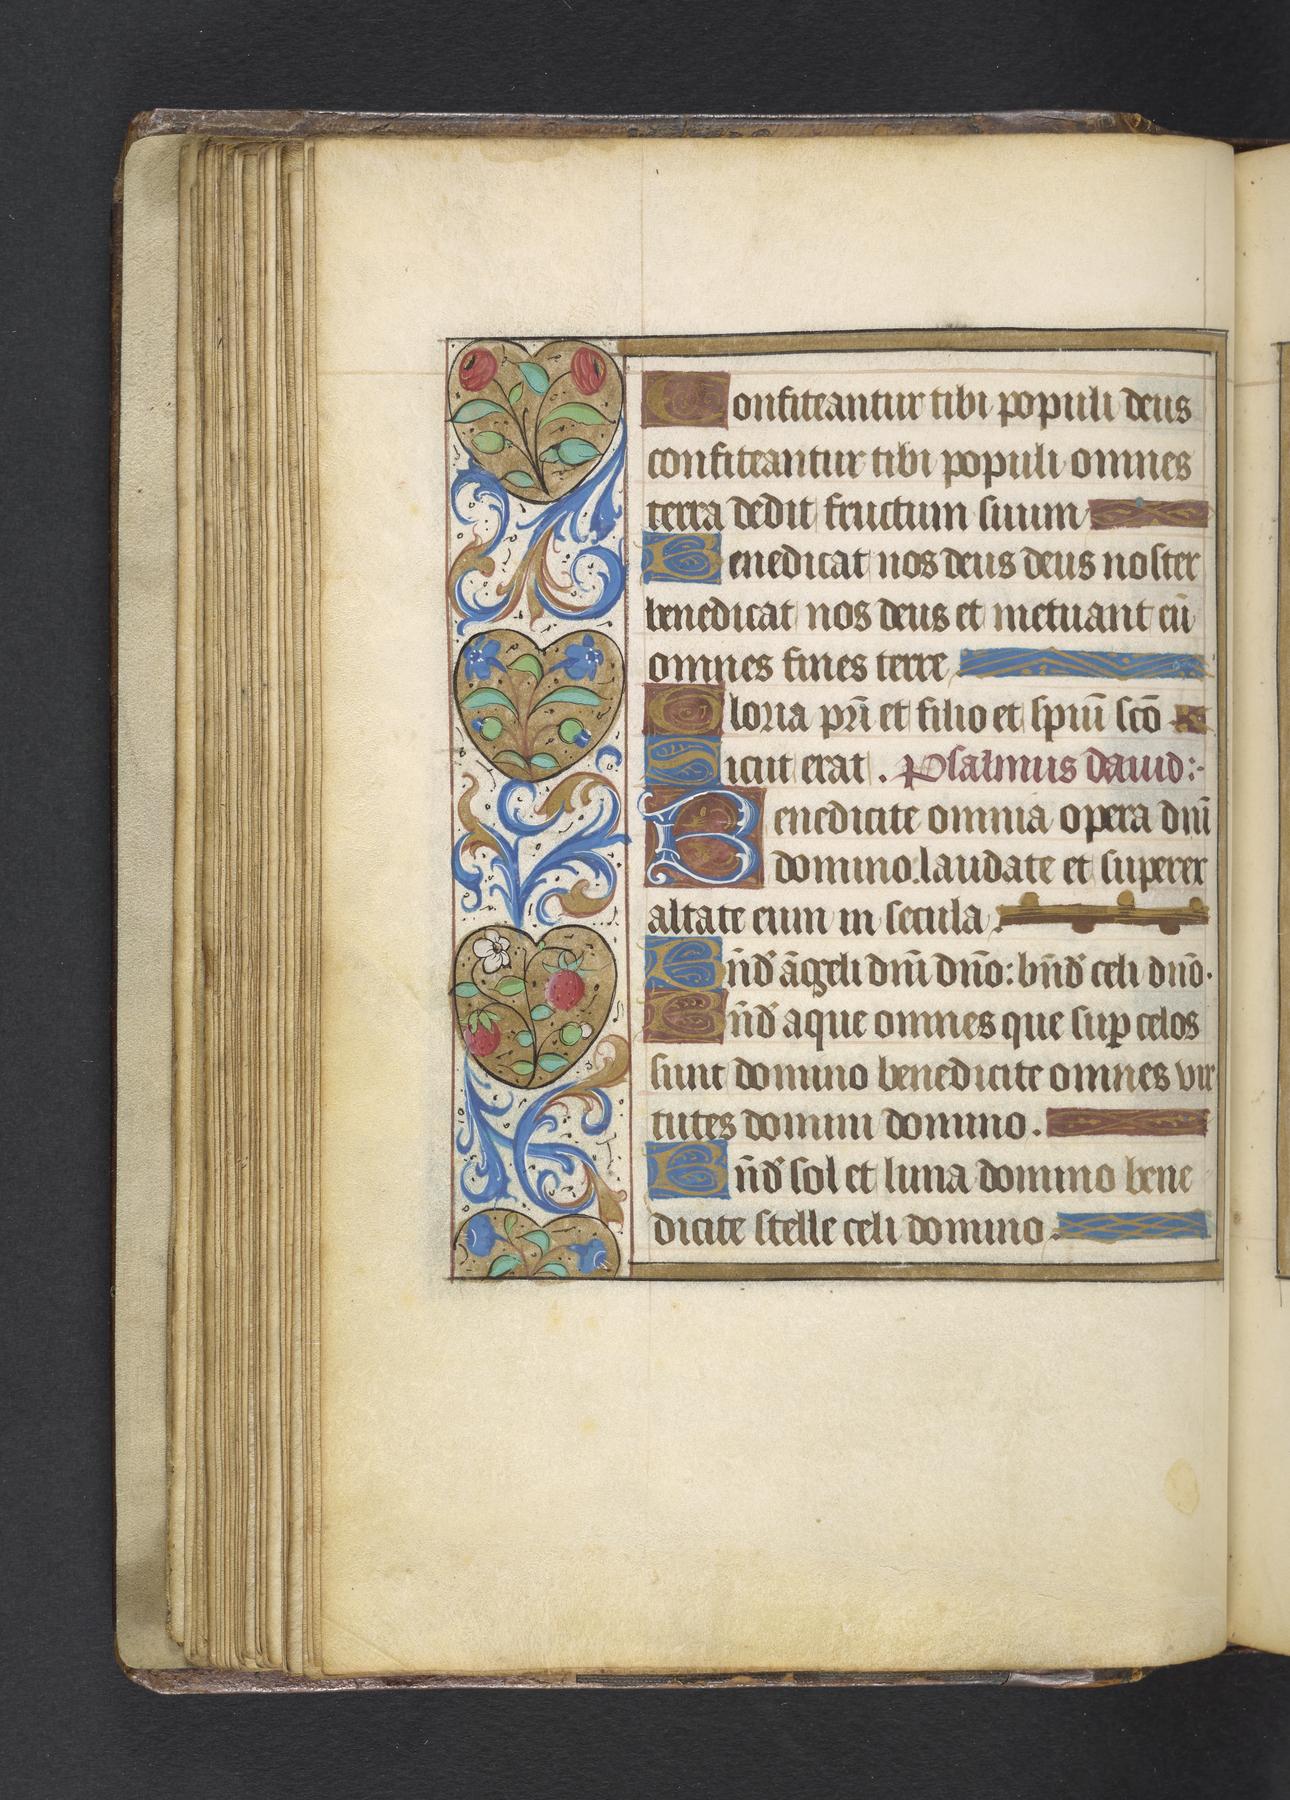 Confiteantur tibi populi deus
confiteantur tibi populi omnes
terra dedit fructum suum
Benedicat nos deus deus noster
benedicat nos deus et metuant eū
omnes fines terre
Gloria pr̄i et filio et spiū sc̄o
Sicut erat . Psalmus dauid :-
Benedicite omnia opera dn̄i
domino.laudate et superex
altate eum in secula .
Bn̄d' āgeli dn̄i dn̄o : bn̄d' celi dn̄o.
Bn̄d' aque omnes que sup̱ celos
sunt domino benedicite omnes vir
tutes domini domino .
Bn̄d' sol et luna domino bene
dicite stelle celi domino .